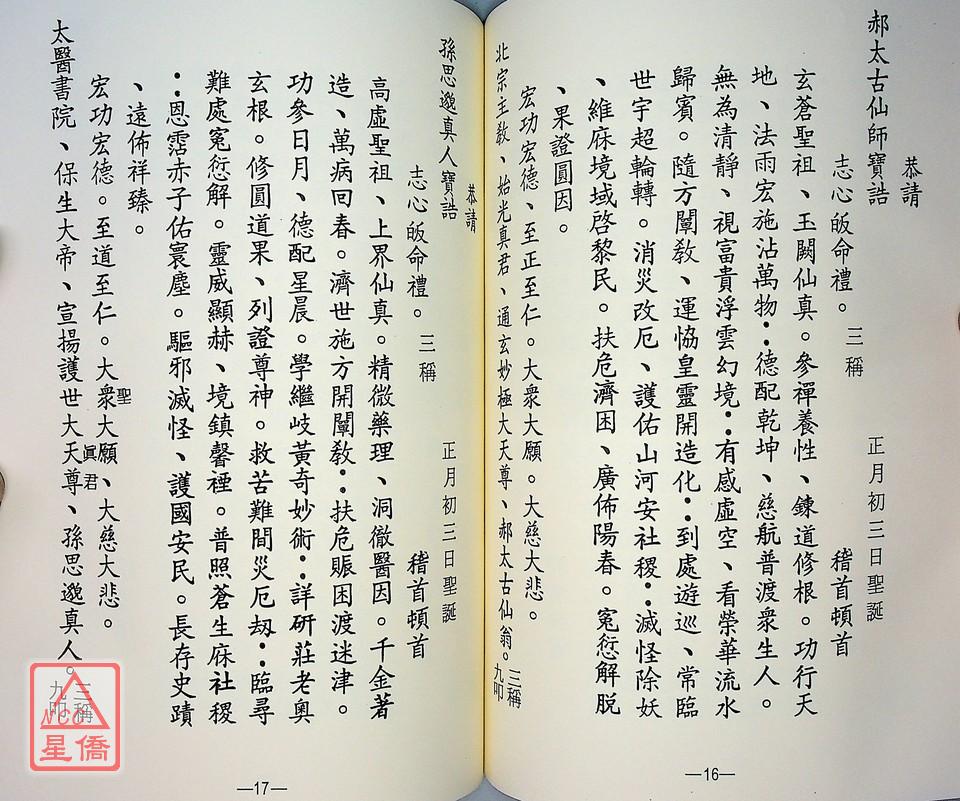 恭請
郝太古仙師寶誥　正月初三日聖誕
志心皈命禮。三稱　稽首頓首
玄蒼聖祖、玉闕仙真。參禪養性、鍊道修根。功行天
地、法雨宏施沾萬物：德配乾坤、慈航普渡衆生人。
無為清靜、視富貴浮雲幻境：有感虛空、看榮華流水
歸賓。隨方闡教、運協皇靈開造化：到處遊巡、常臨
世宇超輪轉。消災改厄、護佑山河安社稷：滅怪除妖
、維庥境域啓黎民。扶危濟困、廣佈陽春。冤愆解脱
、果證圓因。
宏功宏德、至正至仁。大衆大願。大慈大悲。
北宗主教、始光真君、通玄妙極大天尊、郝太古仙翁。三稱九叩
—16—
恭請
孫思邈真人寶誥　正月初三日聖誕
志心皈命禮。三稱　稽首頓首
高虛聖祖、上界仙真。精微藥理、洞徹醫因。千金著
造、萬病回春。濟世施方開闡教：扶危賑困渡迷津。
功參日月、德配星晨。學繼岐黃奇妙術：詳研莊老奧
玄根。修圓道果、列證尊神。救苦難間災厄劫：臨尋
難處冤愆解。靈威顯赫、境鎮馨禋。普照蒼生庥社稷
：恩霑赤子佑寰塵。驅邪滅怪、護國安民。長存史蹟
、遠佈祥臻。
宏功宏德。至道至仁。大衆大願、大慈大悲。
聖
眞君
太醫書院、保生大帝、宣揚護世大天尊、孫思邈真人。三稱九叩
—17—
NCC
星僑